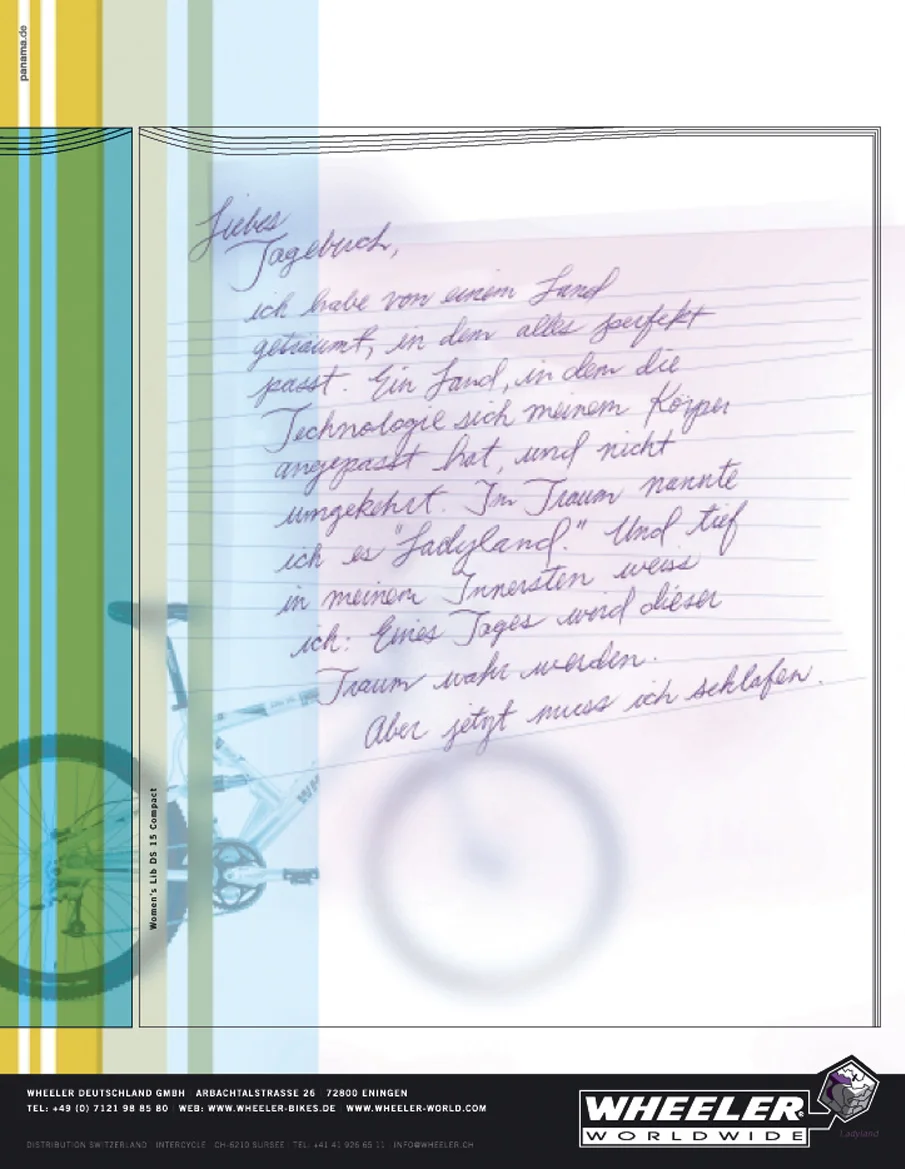 panama.de
Liebes
Tagebuch,
ich habe von einem Land
geträumt, in dem alles perfekt
passt. Ein Land, in dem die
Technologie sich meinem Körper
angepasst hat, und nicht
umgekehrt. Im Traum nannte
ich es "Ladyland." Und tief
in meinem Innersten weiss
ich: Eines Tages wird dieser
Traum wahr werden.
Aber jetzt muss ich schlafen.
Women's Lib DS 15 Compact
WHEELER DEUTSCHLAND GMBH | ARBACHTALSTRASSE 26 | 72800 ENINGEN
TEL: +49 (0) 7121 98 85 80 | WEB: WWW.WHEELER-BIKES.DE | WWW.WHEELER-WORLD.COM
DISTRIBUTION SWITZERLAND | INTERCYCLE | CH-6210 SURSEE | TEL: +41 41 926 65 11 | INFO@WHEELER.CH
WHEELER®
WORLDWIDE
Ladyland